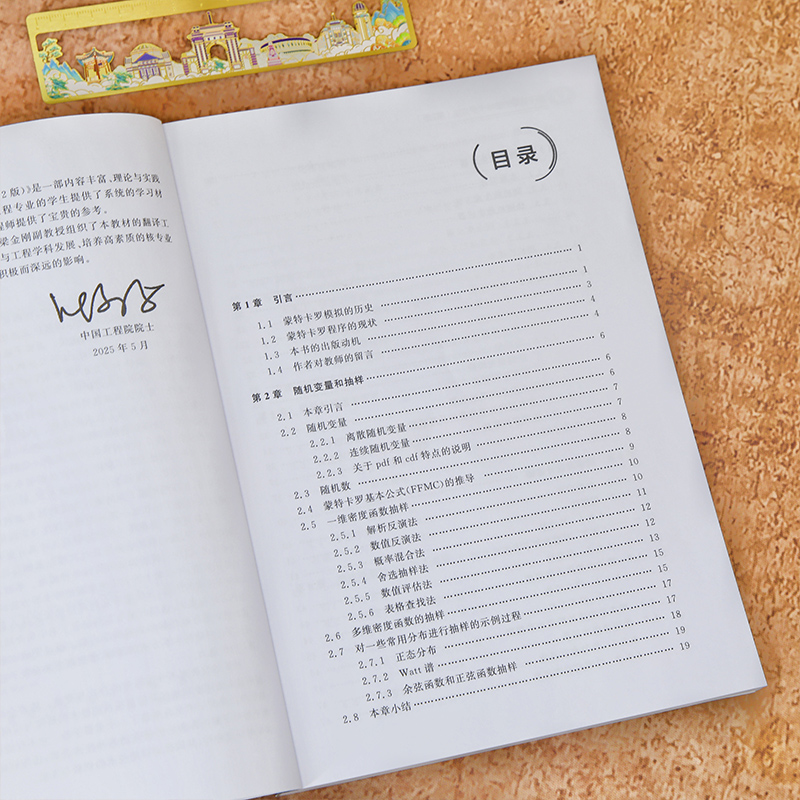 2版)》是一部内容丰富、理论与实践
程专业的学生提供了系统的学习材
程师提供了宝贵的参考。
梁金刚副教授组织了本教材的翻译工
与工程学科发展、培养高素质的核专业
积极而深远的影响。
中国工程院院士
2025年5月
目录
第1章 引言 1
1.1 蒙特卡罗模拟的历史 1
1.2 蒙特卡罗程序的现状 3
1.3 本书的出版动机 4
1.4 作者对教师的留言 4
第2章 随机变量和抽样 6
2.1 本章引言 6
2.2 随机变量 6
2.2.1 离散随机变量 7
2.2.2 连续随机变量 7
2.2.3 关于pdf和cdf特点的说明 8
2.3 随机数 8
2.4 蒙特卡罗基本公式(FFMC)的推导 9
2.5 一维密度函数抽样 10
2.5.1 解析反演法 10
2.5.2 数值反演法 11
2.5.3 概率混合法 12
2.5.4 舍选抽样法 12
2.5.5 数值评估法 13
2.5.6 表格查找法 15
2.6 多维密度函数的抽样 15
2.7 对一些常用分布进行抽样的示例过程 17
2.7.1 正态分布 17
2.7.2 Watt谱 18
2.7.3 余弦函数和正弦函数抽样 19
2.8 本章小结 19